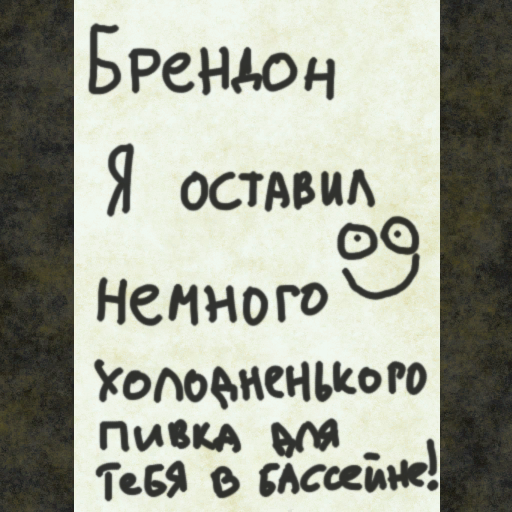 Брендон
Я оставил
немного
холодненького
пивка для
тебя в бассейне!